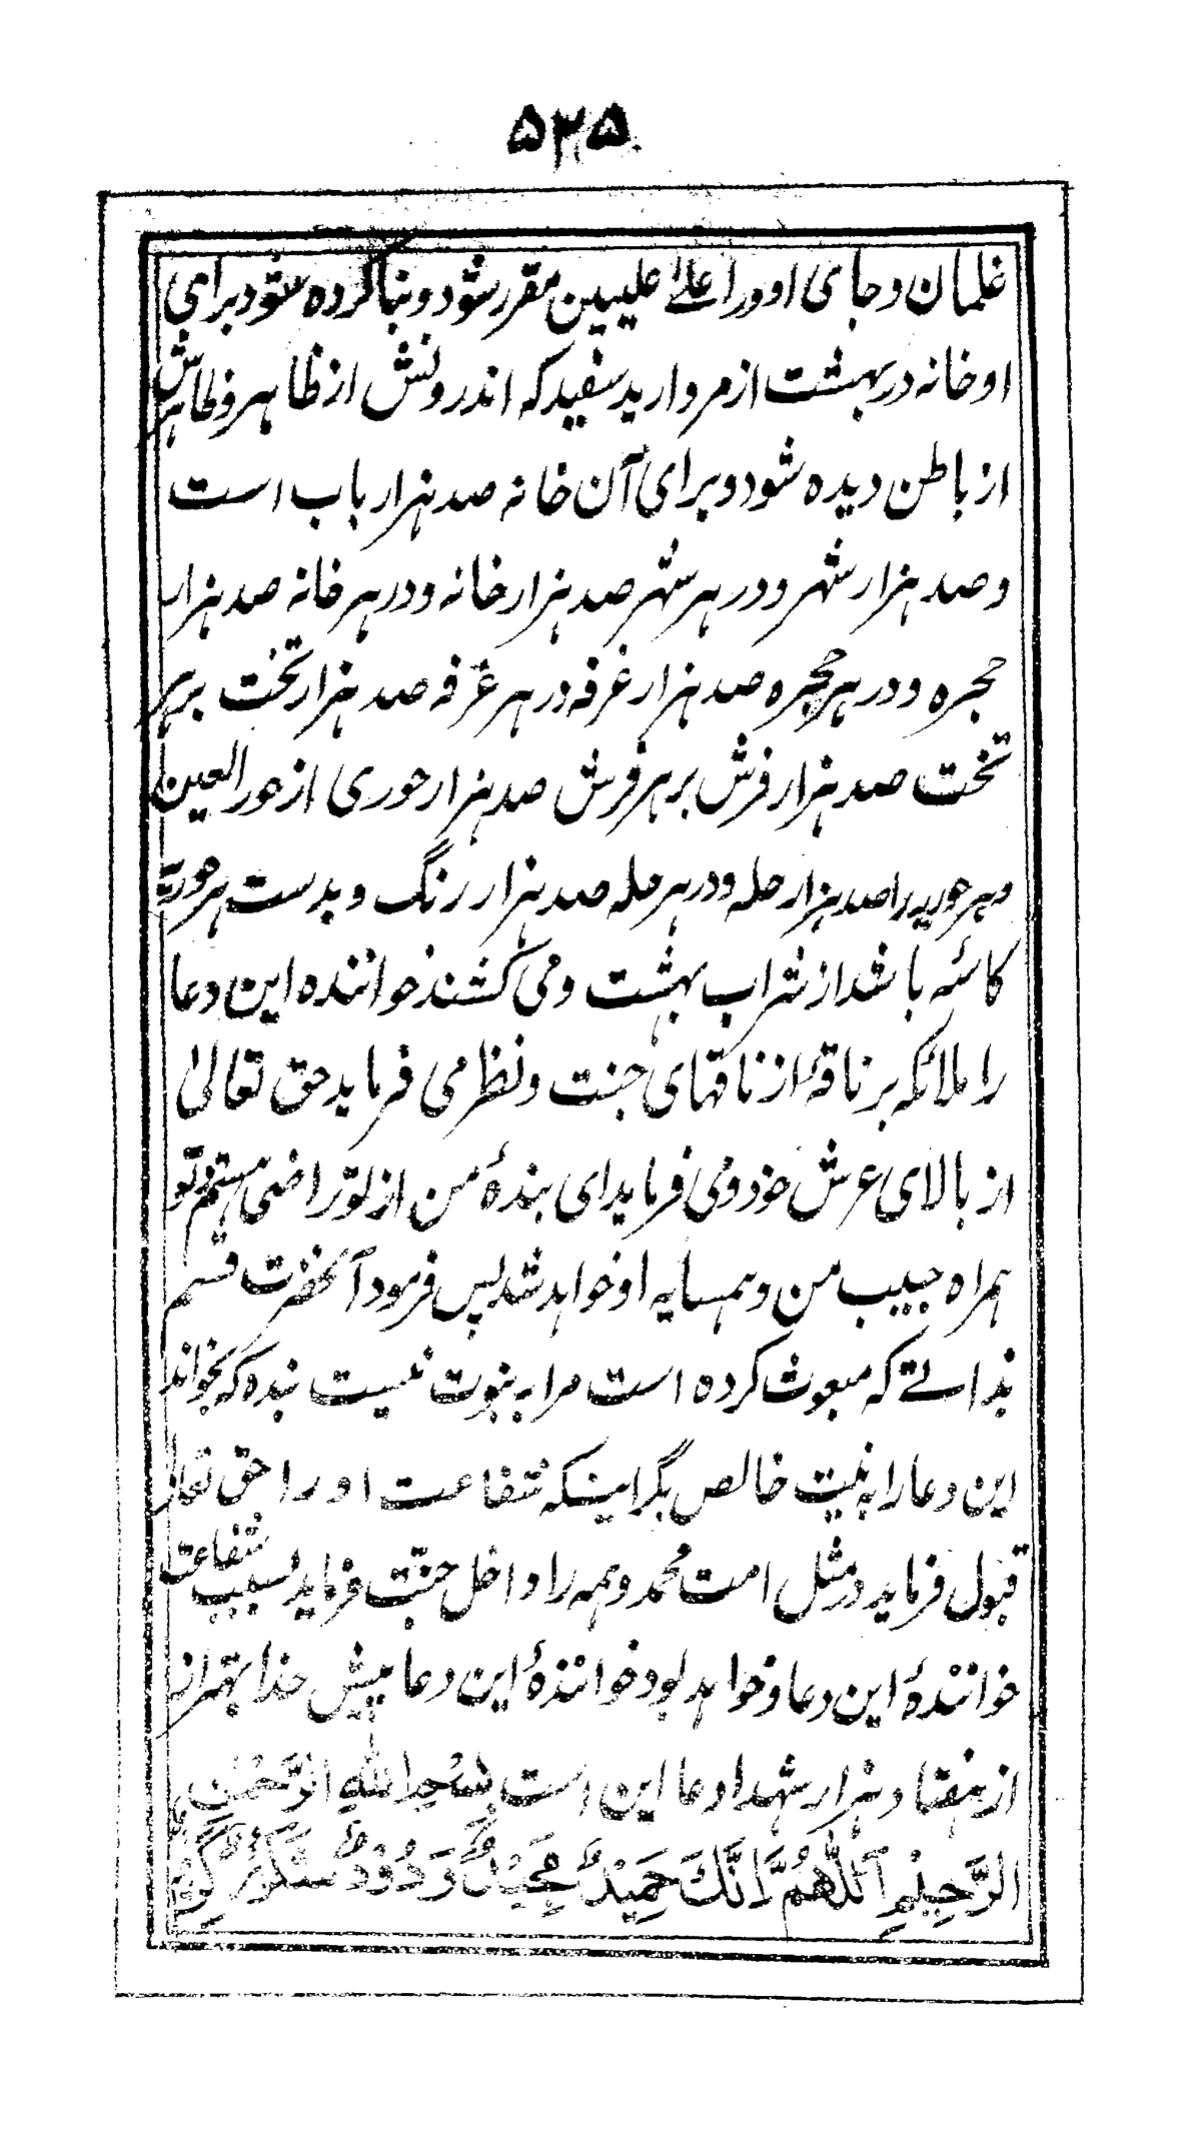 ۵۳۵
غلمان و جای او در اعلے علیین مقرر شود و بنا کرده شود برای
او خانه در بهشت از مروارید سفید که اندرونش از ظاهر و ظاهرش
از باطن دیده شود و برای آن خانه صد هزار باب است
و صد هزار شهر و در هر شهر صد هزار خانه و در هر خانه صد هزار
حجره و در هر حجره صد هزار غرفه در هر غرفه صد هزار تخت بر هر
تخت صد هزار فرش بر هر فرش صد هزار حوری از حور العین
و هر حوریه را صد هزار حله و در هر حله صد هزار رنگ و بدست هر حوریه
کاسۀ باشد از شراب بهشت و می کشند خواننده این دعا
را ملائکه بر ناقۀ از ناقهای جنت و نظر می فرماید حق تعالیٰ
از بالای عرش خود و می فرماید ای بندۀ من از تو راضی هستم و تو
همراه حبیب من و همسایه او خواهد شد پس فرمود آنحضرت قسم
بخدائے که مبعوث کرده است مرا به نبوت نیست بنده که بخواند
این دعا را به نیت خالص مگر اینکه شفاعت او را حق تعالی
قبول فرماید در مثل امت محمد و همه را داخل جنت فرماید بسبب شفاعت
خوانندۀ این دعا و خواهد بود خوانندۀ این دعا پیش خدا بهتر از
از هفتاد هزار شهدا دعا این است بِسْمِ اللهِ الرَّحْمٰنِ
الرَّحِیْمِ اَللّٰهُمَّ اِنَّكَ حَمِیْدٌ مَجِیْدٌ وَدُوْدٌ شَکُوْرٌ کَرِیْمٌ